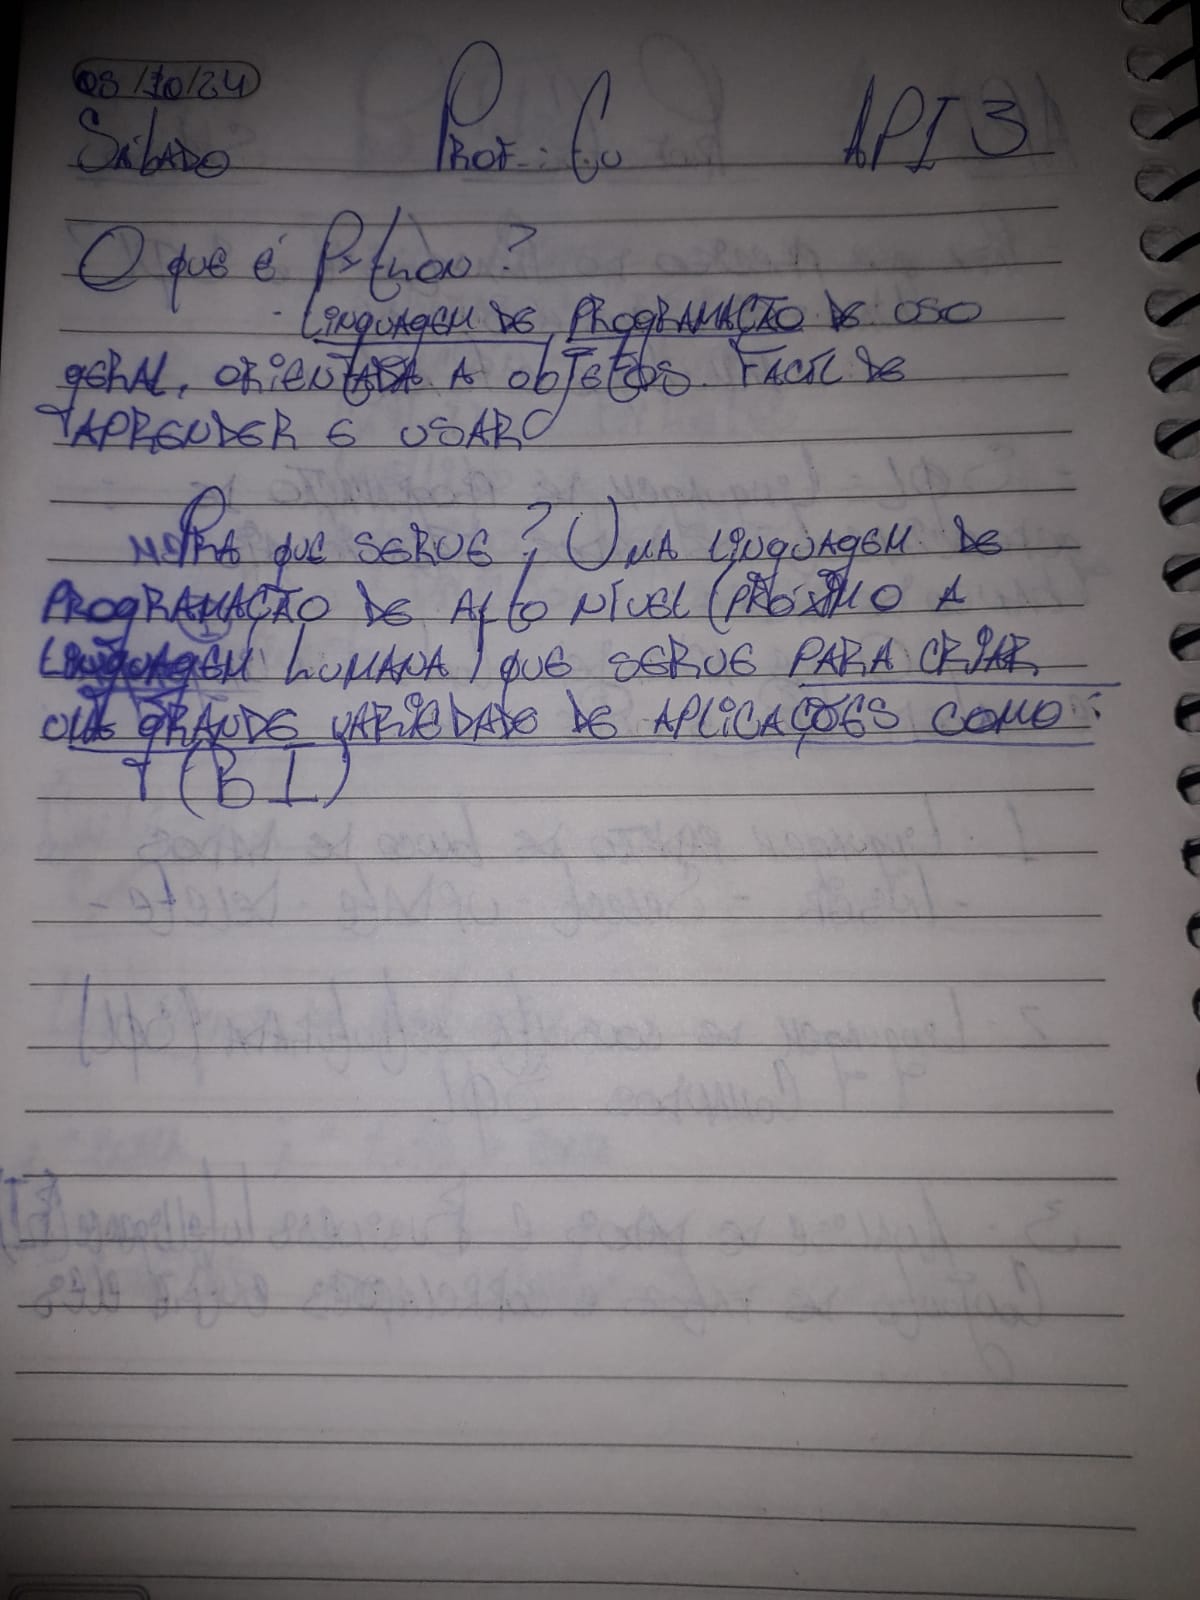 05/10/24
Sábado Prof.: Eu API 3
O que é Python?
- Linguagem de programação de uso
geral, orientada a objetos. Facil de
aprender e usar
Pra que serve? Uma linguagem de
programação de alto nível (próximo a
linguagem humana) que serve para criar
uma grande variedade de aplicações como:
(BI)